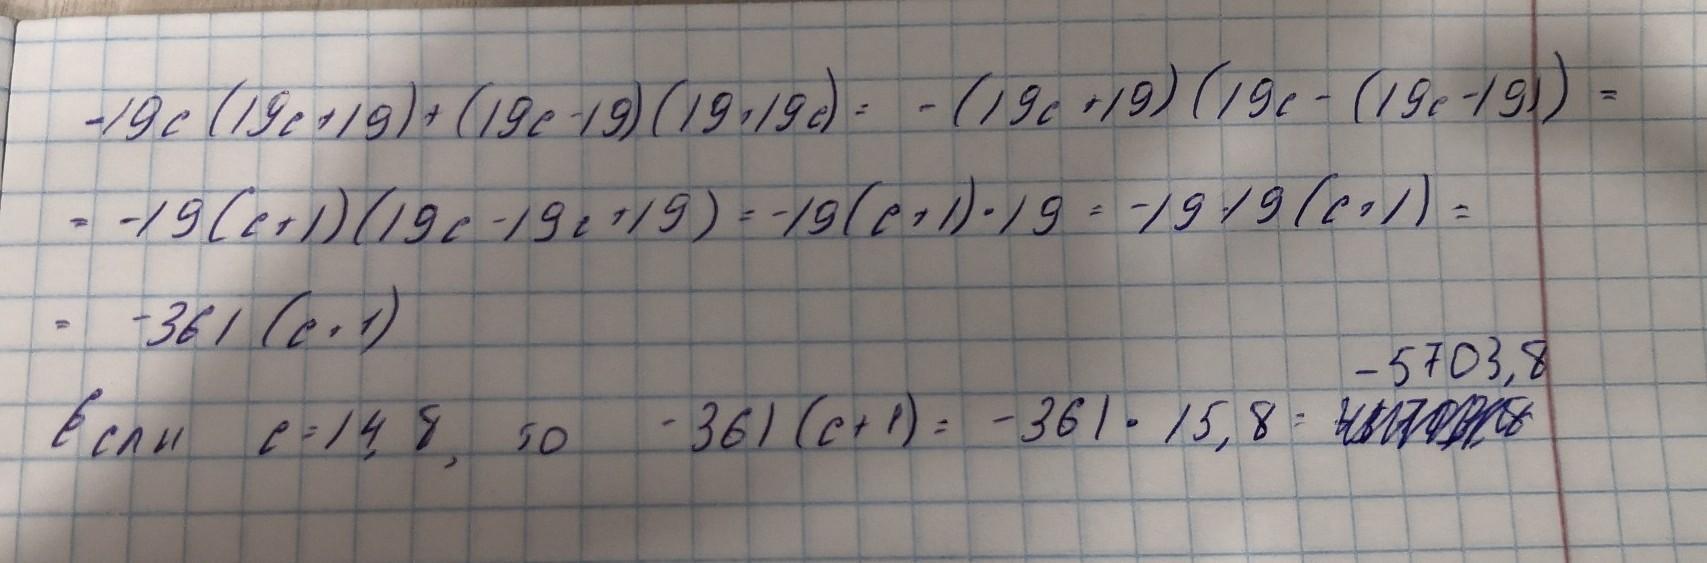 -19c(19c+19)+(19c-19)(19+19c)= -(19c+19)(19c-(19c-19))=
= -19(c+1)(19c-19c+19)=-19(c+1)·19= -19·19(c+1)=
= -361(c+1)
-5703,8
Если c=14,8, то -361(c+1)= -361·15,8=